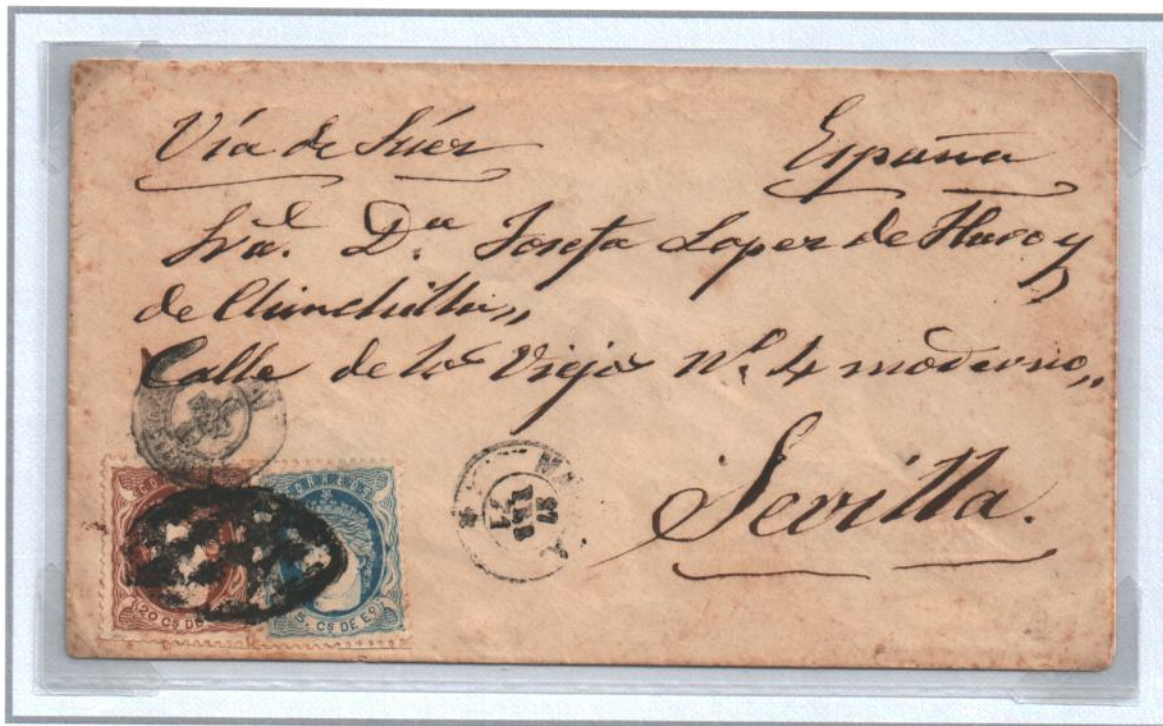 Vía de Súez
España
Sra. Da. Josefa Lopez de Haro y
de Chinchilla„
Calle de los Viejos Nº. 4 moderno„
Sevilla.
20 CS DE
5. CS DE Eo.
71